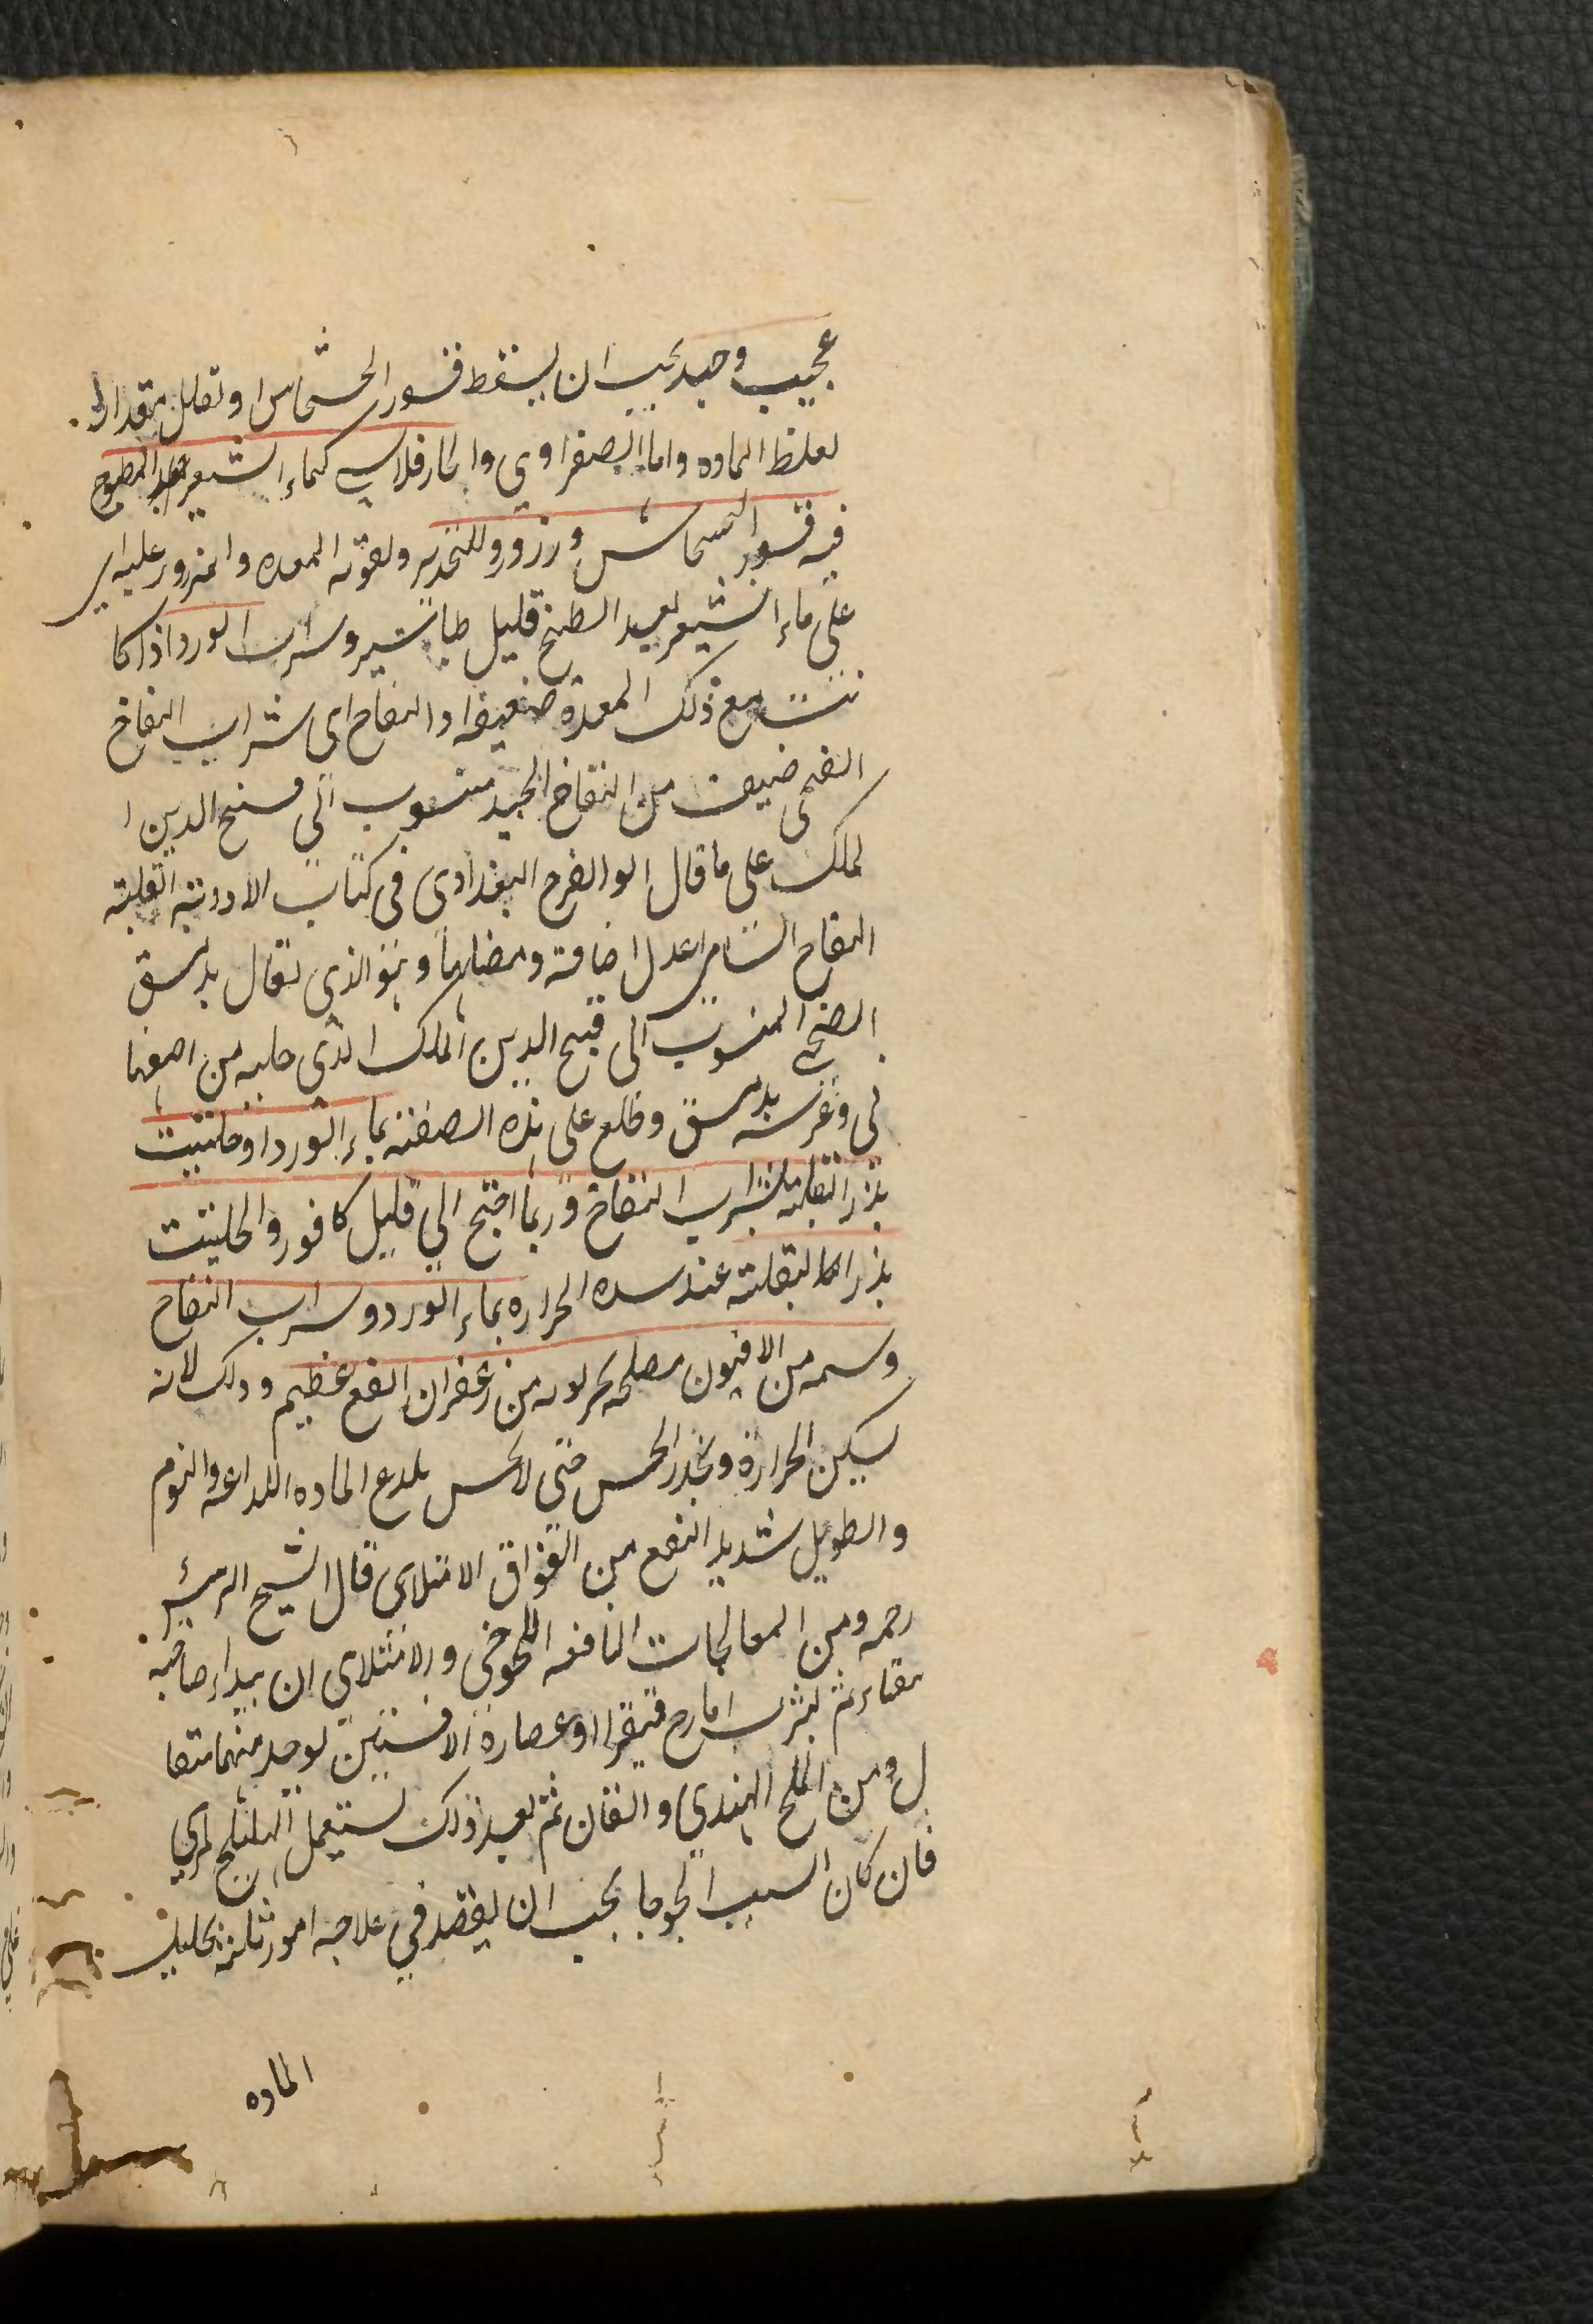 عجيب وحيد يجب ان يسقط قشور الخشخاش او تقلل مقدارا
لغلظ الماده واما الصفراوي والحار فلاشي كماء الشعير المطبوخ
فيه قشور الخشخاش وزرور وللتخدير ولقوته المعده والمزور عليه اي
على ماء الشعير بعد الطبخ قليل طباشير وشراب الورد اذا كا
نت مع ذلك المعدة ضعيفه او التفاح اى شراب التفاح
الفتحى ضيف من التفاح الجيد منسوب الى فتح الدين ا
لملك على ما قال ابو الفرج البغدادى فى كتاب الادوية القلبية
التفاح الشامى اعدل اضافة وبعضلها وهو الذي يقال بدمشق
الفتحى المنسوب الى فتح الدين الملك الذى جلبه من اصفها
نى وغرسه بدمشق وطلع على هذه الصفة بماء الورد او حلتيت
بذر البقلة بشراب التفاح وربما احتج الي قليل كافور والحلتيت
بذر البقلة عند شده الحراره بماء الورد وشراب التفاح
وشمه من الافيون مصلحة من زعفران انفع عظيم وذلك لانه
يسكن الحرارة ويخدر الحس حتى لا يحس بلدع الماده اللداعه والنوم
والطويل شديد النفع من الفواق الامتلاى قال الشيخ الرئيس
رحمه ومن المعالجات النافعه اللحوحى والامتلاي ان يبداء صاحبه
بقاء ثم بشرب ايارج فيقرا او عصارة الافسنتين يوحد منهما مثقا
ل ومن الملح الهندي دانقان ثم بعد ذلك يستعمل الهليلج لمربي
فان كان السبب لحوجا يجب ان يقصد في علاجه امور ثلثه تحليل
الماده